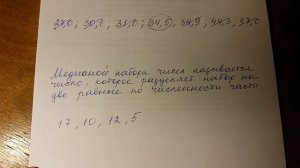 30,7; 31,0; 34,5; 34,9; 44,3,
Медианой набора чисел называется
число, которое разделяет набор на
две равные по численности части
17, 10, 12, 5